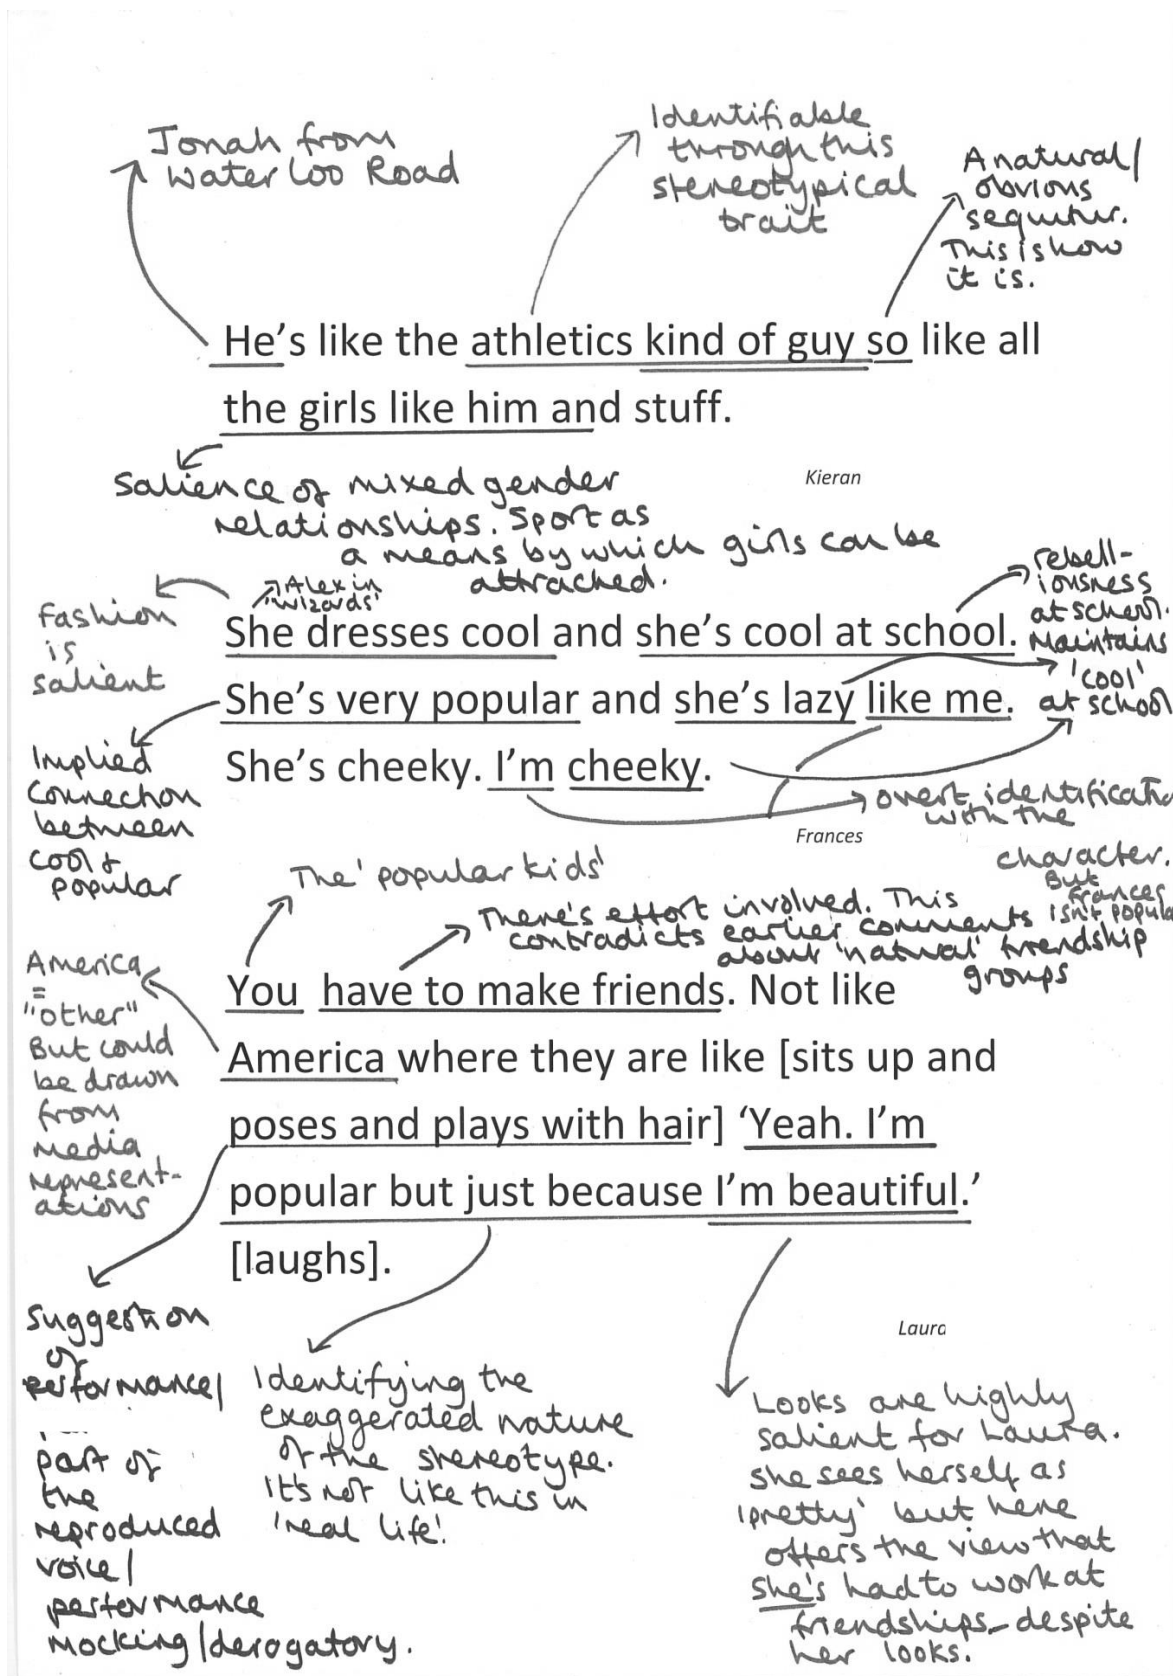 Jonah from
Waterloo Road
Identifiable
through this
stereotypical
trait
A natural/
obvious
sequitur.
This is how
it is.
He's like the athletics kind of guy so like all
the girls like him and stuff.
Kieran
Salience of mixed gender
relationships. Sport as
a means by which girls can be
attracted.
Fashion
is
salient
Alex in
'Wizards'
rebell-
iousness
at school.
Maintains
'cool'
at school
She dresses cool and she's cool at school.
She's very popular and she's lazy like me.
She's cheeky. I'm cheeky.
Implied
connection
between
cool &
popular
overt identificatio
with the
character.
But
Frances
isn't popula
Frances
The 'popular kids'
There's effort involved. This
contradicts earlier comments
about 'natural' friendship
groups
America
=
"other"
But could
be drawn
from
media
represent-
ations
You have to make friends. Not like
America where they are like [sits up and
poses and plays with hair] 'Yeah. I'm
popular but just because I'm beautiful.'
[laughs].
Laura
Suggestion
of
performance/
part of
the
reproduced
voice/
performance
Mocking/derogatory.
Identifying the
exaggerated nature
of the stereotype.
It's not like this in
'real life'.
Looks are highly
salient for Laura.
She sees herself as
'pretty' but here
offers the view that
she's had to work at
friendships - despite
her looks.